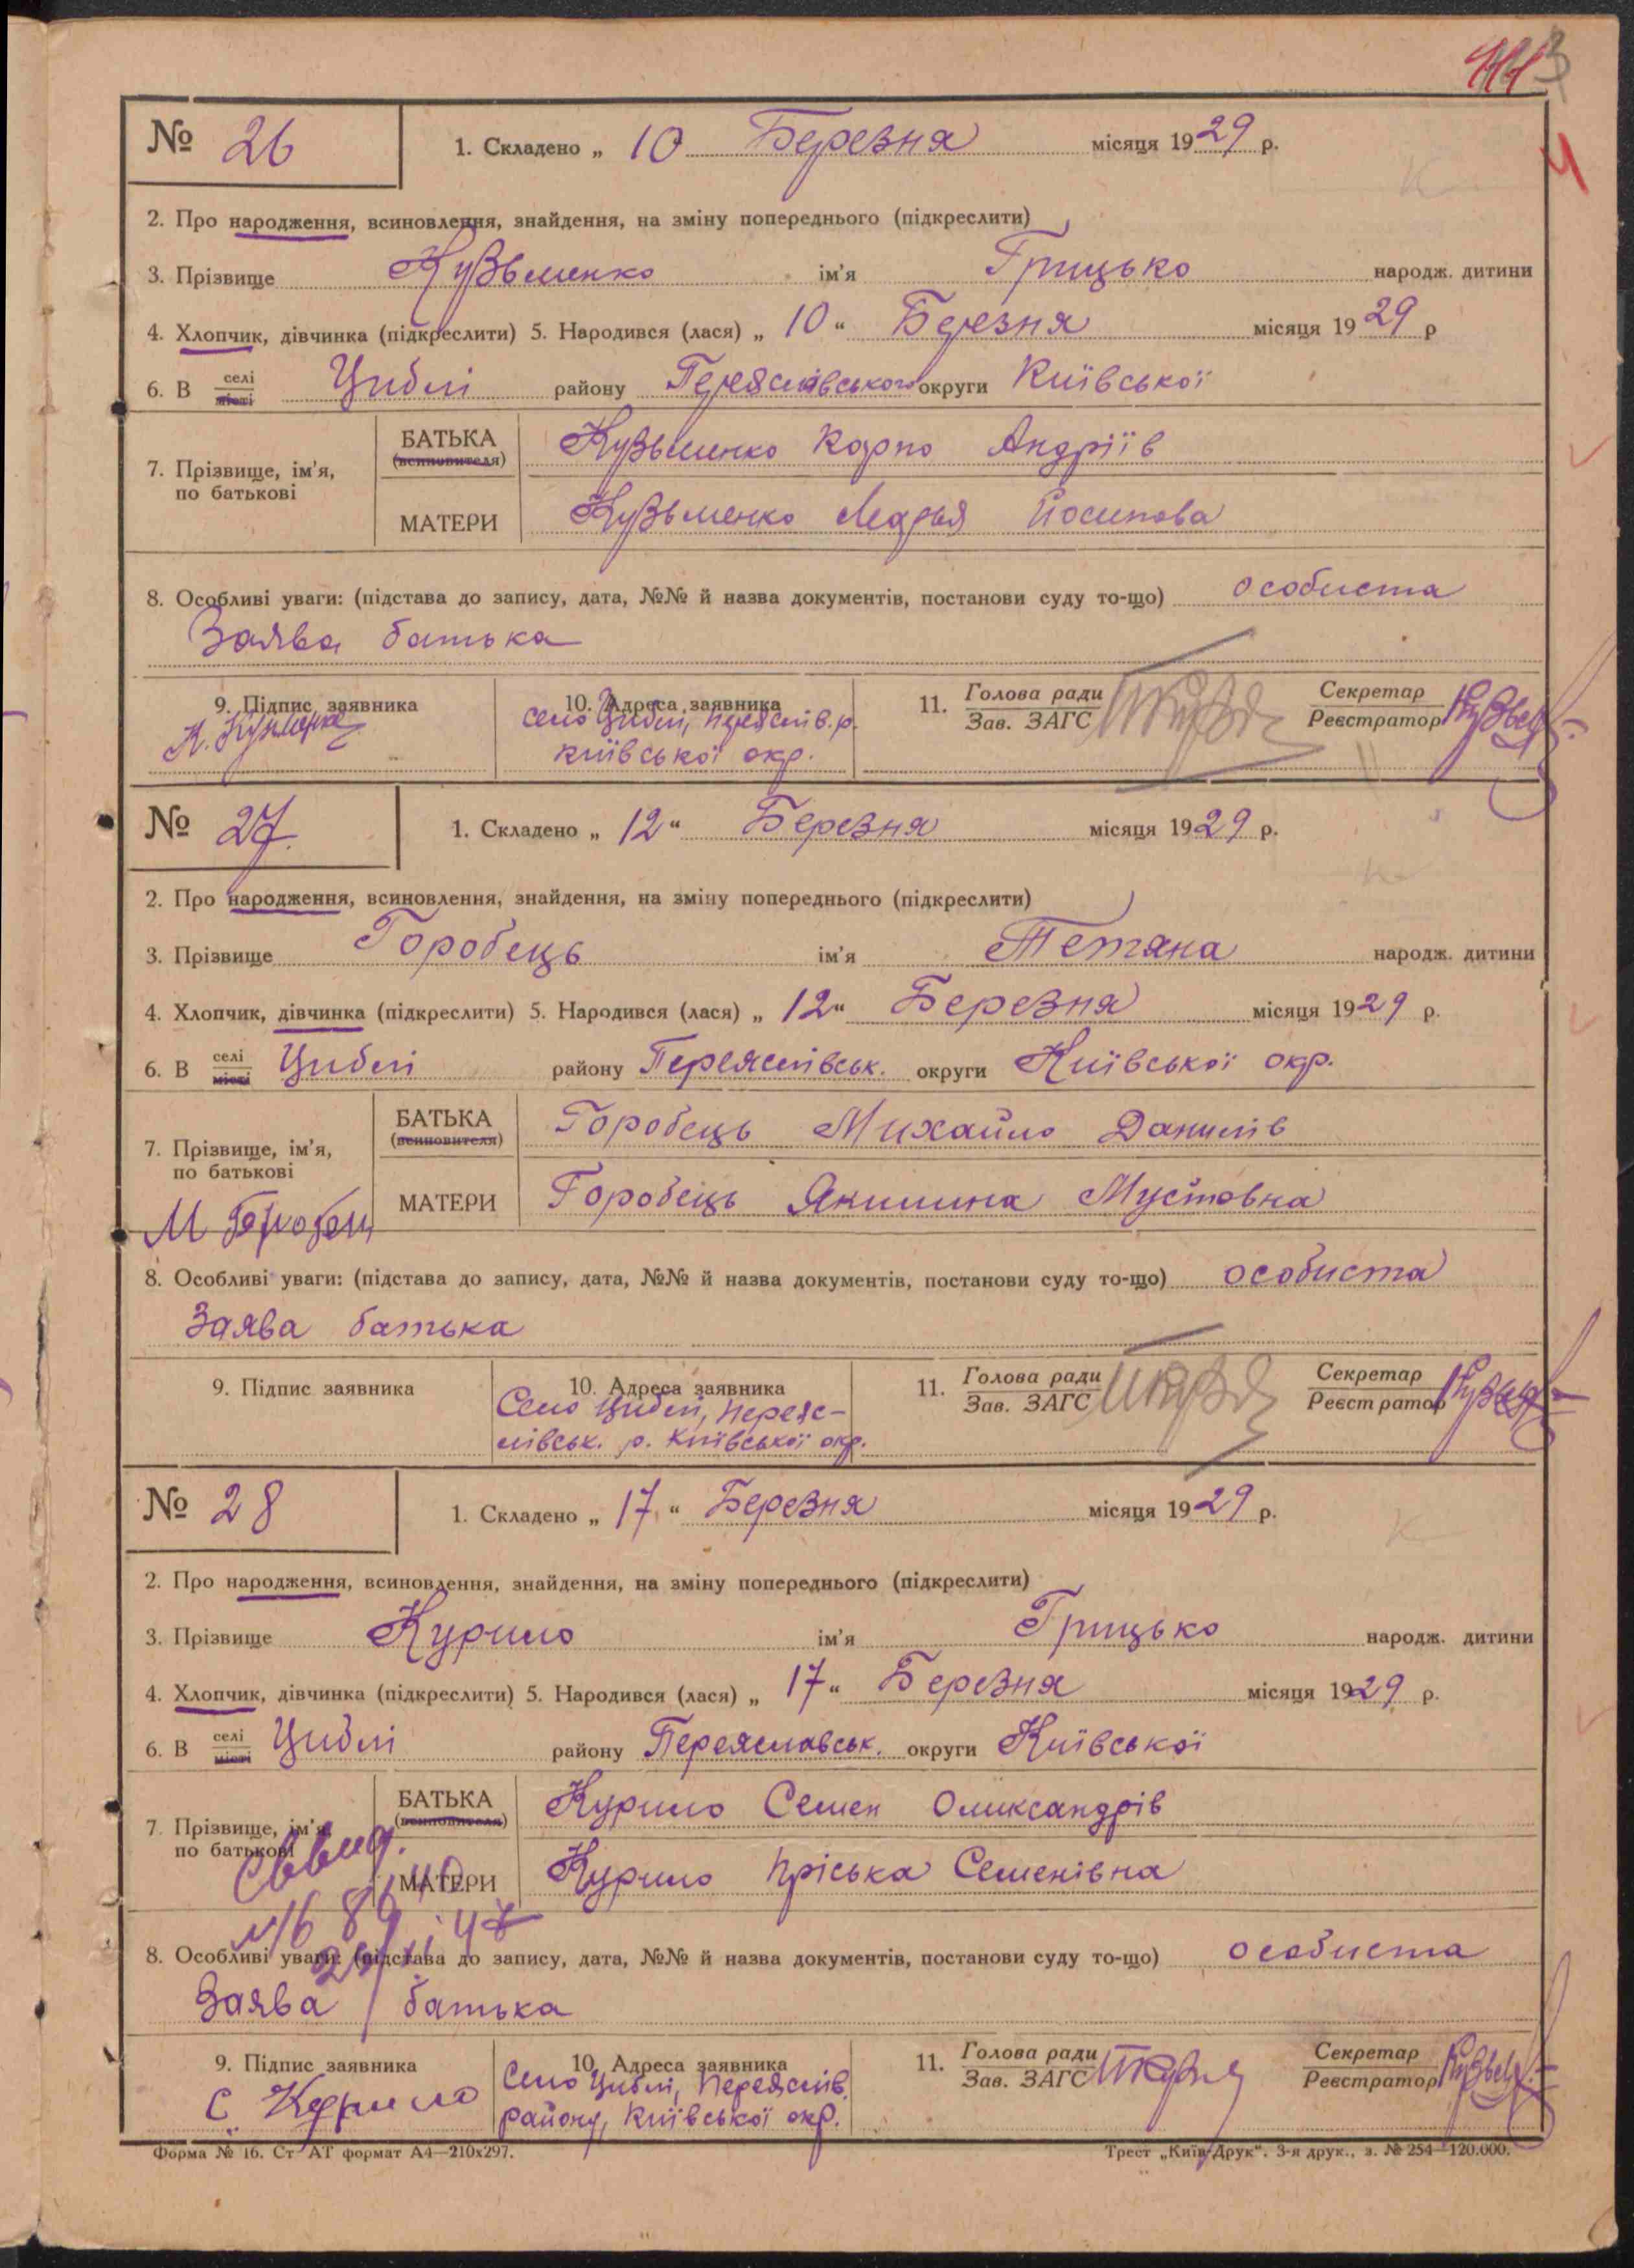 № 26 1. Складено „ 10 Березня місяця 1929 р.
2. Про народження, всиновлення, знайдення, на зміну попереднього (підкреслити)
3. Прізвище Кузьменко ім'я Грицько народж. дитини
4. Хлопчик, дівчинка (підкреслити) 5. Народився (лася) „ 10 “ Березня місяця 1929 р
6. В селі місті Циблі району Переяславського округи Київської
7. Прізвище, ім'я, по батькові
БАТЬКА (всиновителя) Кузьменко Карпо Андріїв
МАТЕРИ Кузьменко Марья Йосипова
8. Особливі уваги: (підстава до запису, дата, №№ й назва документів, постанови суду то-що) особиста
Заява батька
9. Підпис заявника К. Кузменко
10. Адреса заявника
село Циблі, Переяслів. р.
київської окр.
11. Голова ради Зав. ЗАГС Секретар Реєстратор
№ 27. 1. Складено „ 12 “ Березня місяця 1929 р.
2. Про народження, всиновлення, знайдення, на зміну попереднього (підкреслити)
3. Прізвище Горобець ім'я Тетяна народж. дитини
4. Хлопчик, дівчинка (підкреслити) 5. Народився (лася) „ 12 “ Березня місяця 1929 р.
6. В селі місті Циблі району Переяслівськ. округи Київської окр.
7. Прізвище, ім'я, по батькові
БАТЬКА (всиновителя) Горобець Михайло Данилів
МАТЕРИ Горобець Якилина Мустовна
М Горобец
8. Особливі уваги: (підстава до запису, дата, №№ й назва документів, постанови суду то-що) особиста
Заява батька
9. Підпис заявника
10. Адреса заявника
Село Циблі, Переяс-
лівськ. р. Київської окр.
11. Голова ради Зав. ЗАГС Секретар Реєстратор
№ 28 1. Складено „ 17 “ Березня місяця 1929 р.
2. Про народження, всиновлення, знайдення, на зміну попереднього (підкреслити)
3. Прізвище Курило ім'я Грицько народж. дитини
4. Хлопчик, дівчинка (підкреслити) 5. Народився (лася) „ 17 “ Березня місяця 1929 р.
6. В селі місті Циблі району Переяславськ. округи Київської
7. Прізвище, ім'я, по батькові
БАТЬКА (всиновителя) Курило Семен Олександрів
МАТЕРИ Курило Пріська Семенівна
8. Особливі уваги: (підстава до запису, дата, №№ й назва документів, постанови суду то-що) особиста
Заява батька
9. Підпис заявника С. Курило
10. Адреса заявника
Село Циблі, Переяслів.
району, Київської окр.
11. Голова ради Зав. ЗАГС Секретар Реєстратор
Форма № 16. Ст АТ формат А4—210х297. Трест „Київ-Друк“. 3-я друк., з. № 254—120.000.